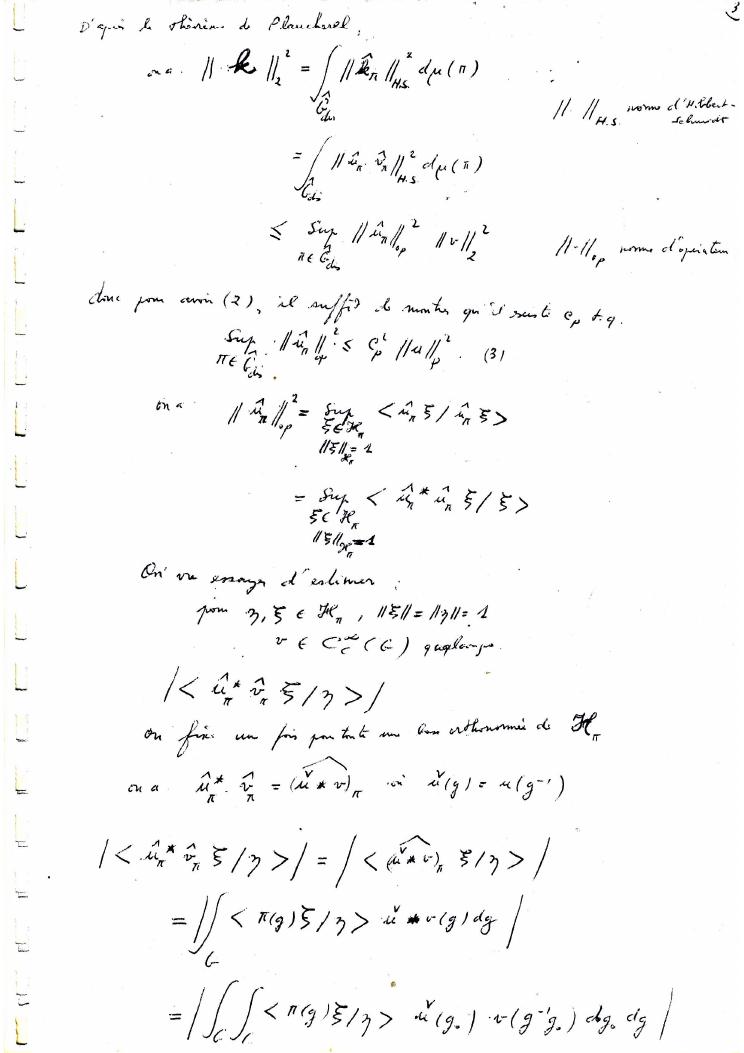 3
D'après le théorème de Plancherel,
on a ‖k‖₂² = ∫_{Ĝ_dis} ‖k̂_π‖²_{H.S.} dμ(π)
‖ ‖_{H.S.} norme d'Hilbert-
Schmidt
= ∫_{Ĝ_dis} ‖û_π v̂_π‖²_{H.S} dμ(π)
≤ Sup_{π ∈ Ĝ_dis} ‖û_π‖²_{op} ‖v‖₂²
‖-‖_{op} norme d'opérateur
donc pour avoir (2), il suffit de montrer qu'il existe C_p t.q.
Sup_{π ∈ Ĝ_dis} ‖û_π‖²_{op} ≤ C_p² ‖u‖_p². (3)
on a ‖û_π‖²_{op} = Sup_{ξ ∈ ℋ_π, ‖ξ‖_{ℋ_π} = 1} < û_π ξ / û_π ξ >
= Sup_{ξ ∈ ℋ_π, ‖ξ‖_{ℋ_π} = 1} < û_π* û_π ξ / ξ >
On va essayer d'estimer :
pour η, ξ ∈ ℋ_π, ‖ξ‖ = ‖η‖ = 1
v ∈ C_c^∞(G) quelconque.
|< û_π* v̂_π ξ / η >|
on fixe une fois pour toute une base orthonormée de ℋ_π
on a û_π* v̂_π = (ǔ * v)^_π où ǔ(g) = u(g⁻¹)
|< û_π* v̂_π ξ / η >| = |< (ǔ * v)^_π ξ / η >|
= |∫∫_G < π(g)ξ / η > ǔ * v(g) dg|
= |∫_G ∫_G < π(g)ξ / η > ǔ(g₀) v(g⁻¹g₀) dg₀ dg|